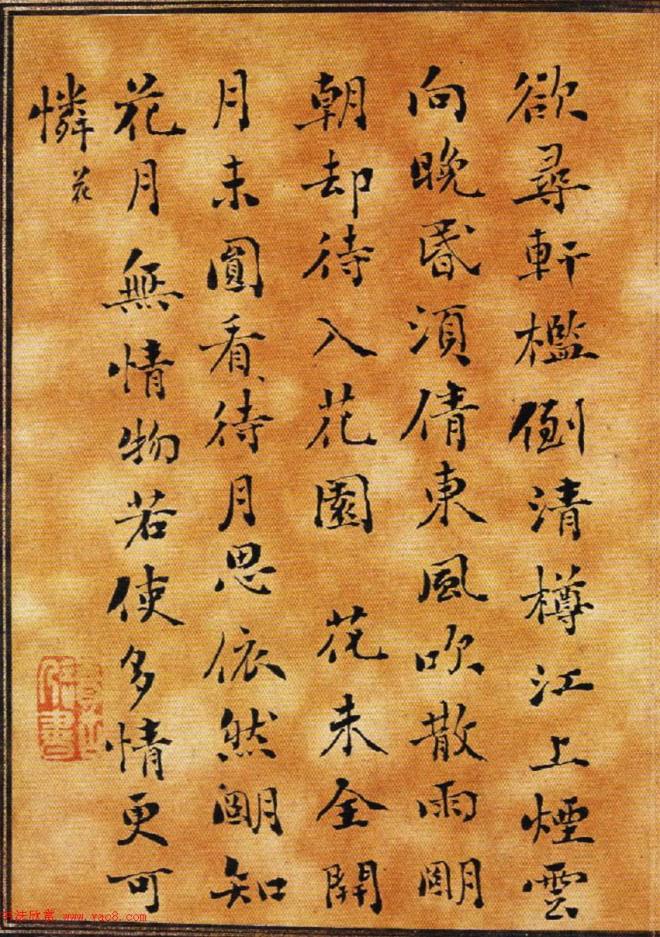 欲尋軒檻倒清樽江上煙雲
向晚昏須倩東風吹散雨明
朝却待入花園 花未全開
月未圓看花待月思依然明知
花月無情物若使多情更可
憐
www.yac8.com